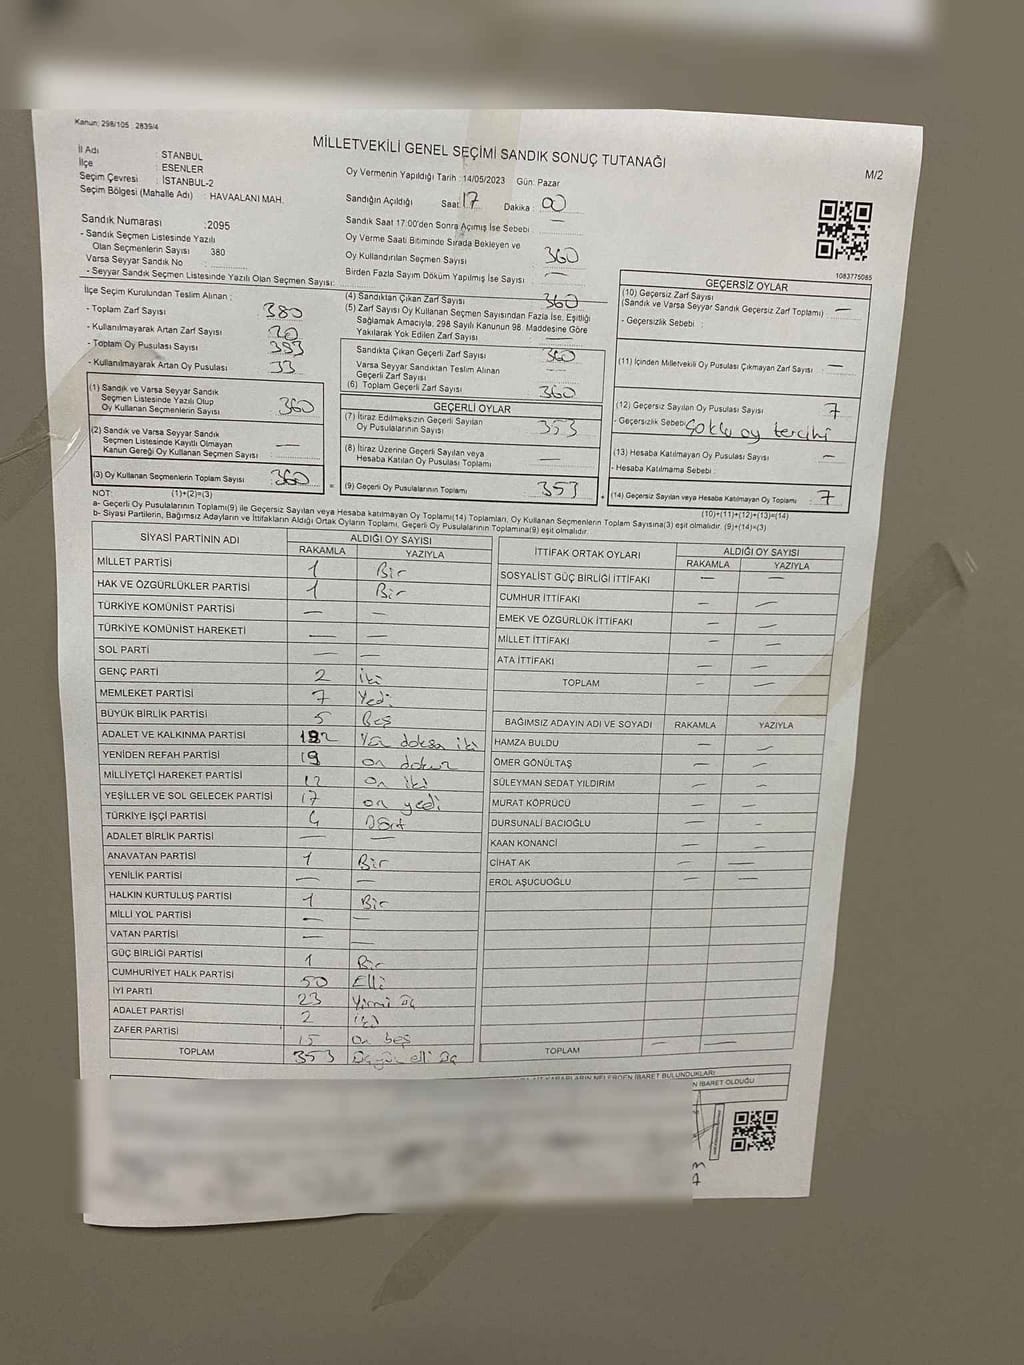 Kanun: 298/105 2839/4
MİLLETVEKİLİ GENEL SEÇİMİ SANDIK SONUÇ TUTANAĞI
M/2
İl Adı : STANBUL
İlçe : ESENLER
Seçim Çevresi : İSTANBUL-2
Seçim Bölgesi (Mahalle Adı) : HAVAALANI MAH.
Oy Vermenin Yapıldığı Tarih : 14/05/2023 Gün: Pazar
Sandığın Açıldığı Saat 17 Dakika : 00
Sandık Saat 17:00'den Sonra Açımış İse Sebebi : —
Oy Verme Saati Bitiminde Sırada Bekleyen ve
Oy Kullandırılan Seçmen Sayısı 360
Birden Fazla Sayım Döküm Yapılmış İse Sayısı : —
Sandık Numarası : 2095
- Sandık Seçmen Listesinde Yazılı
Olan Seçmenlerin Sayısı 380
Varsa Seyyar Sandık No
- Seyyar Sandık Seçmen Listesinde Yazılı Olan Seçmen Sayısı:
1083775085
İlçe Seçim Kurulundan Teslim Alınan :
- Toplam Zarf Sayısı 380
- Kullanılmayarak Artan Zarf Sayısı 20
- Toplam Oy Pusulası Sayısı 393
- Kullanılmayarak Artan Oy Pusulası 33
(1) Sandık ve Varsa Seyyar Sandık
Seçmen Listesinde Yazılı Olup
Oy Kullanan Seçmenlerin Sayısı : 360
(2) Sandık ve Varsa Seyyar Sandık
Seçmen Listesinde Kayıtlı Olmayan
Kanun Gereği Oy Kullanan Seçmen Sayısı : —
(3) Oy Kullanan Seçmenlerin Toplam Sayısı : 360
(4) Sandıktan Çıkan Zarf Sayısı 360
(5) Zarf Sayısı Oy Kullanan Seçmen Sayısından Fazla İse, Eşitliği
Sağlamak Amacıyla, 298 Sayılı Kanunun 98. Maddesine Göre
Yakılarak Yok Edilen Zarf Sayısı : —
Sandıkta Çıkan Geçerli Zarf Sayısı 360
Varsa Seyyar Sandıktan Teslim Alınan
Geçerli Zarf Sayısı —
(6) Toplam Geçerli Zarf Sayısı 360
GEÇERLİ OYLAR
(7) İtiraz Edilmeksizin Geçerli Sayılan
Oy Pusulalarının Sayısı : 353
(8) İtiraz Üzerine Geçerli Sayılan veya
Hesaba Katılan Oy Pusulası Toplamı : —
= (9) Geçerli Oy Pusulalarının Toplamı : 353
GEÇERSİZ OYLAR
(10) Geçersiz Zarf Sayısı
(Sandık ve Varsa Seyyar Sandık Geçersiz Zarf Toplamı) : —
- Geçersizlik Sebebi :
(11) İçinden Milletvekili Oy Pusulası Çıkmayan Zarf Sayısı : —
(12) Geçersiz Sayılan Oy Pusulası Sayısı 7
- Geçersizlik Sebebi Çoklu oy tercihi
(13) Hesaba Katılmayan Oy Pusulası Sayısı —
- Hesaba Katılmama Sebebi :
+ (14) Geçersiz Sayılan veya Hesaba Katılmayan Oy Toplamı : 7
(10)+(11)+(12)+(13)=(14)
NOT: (1)+(2)=(3)
a- Geçerli Oy Pusulalarının Toplamı(9) ile Geçersiz Sayılan veya Hesaba katılmayan Oy Toplamı(14) Toplamları, Oy Kullanan Seçmenlerin Toplam Sayısına(3) eşit olmalıdır. (9)+(14)=(3)
b- Siyasi Partilerin, Bağımsız Adayların ve İttifakların Aldığı Ortak Oyların Toplamı, Geçerli Oy Pusulalarının Toplamına(9) eşit olmalıdır.
SİYASİ PARTİNİN ADI ALDIĞI OY SAYISI
RAKAMLA YAZIYLA
MİLLET PARTİSİ 1 Bir
HAK VE ÖZGÜRLÜKLER PARTİSİ 1 Bir
TÜRKİYE KOMÜNİST PARTİSİ — —
TÜRKİYE KOMÜNİST HAREKETİ — —
SOL PARTİ — —
GENÇ PARTİ 2 iki
MEMLEKET PARTİSİ 7 Yedi
BÜYÜK BİRLİK PARTİSİ 5 Beş
ADALET VE KALKINMA PARTİSİ 192 Yüz doksa iki
YENİDEN REFAH PARTİSİ 19 on dokuz
MİLLİYETÇİ HAREKET PARTİSİ 12 on iki
YEŞİLLER VE SOL GELECEK PARTİSİ 17 on yedi
TÜRKİYE İŞÇİ PARTİSİ 4 Dört
ADALET BİRLİK PARTİSİ — —
ANAVATAN PARTİSİ 1 Bir
YENİLİK PARTİSİ — —
HALKIN KURTULUŞ PARTİSİ 1 Bir
MİLLİ YOL PARTİSİ — —
VATAN PARTİSİ — —
GÜÇ BİRLİĞİ PARTİSİ 1 Bir
CUMHURİYET HALK PARTİSİ 50 Elli
İYİ PARTİ 23 Yirmi üç
ADALET PARTİSİ 2 iki
ZAFER PARTİSİ 15 on beş
TOPLAM 353 Üçyüz elli üç
İTTİFAK ORTAK OYLARI ALDIĞI OY SAYISI
RAKAMLA YAZIYLA
SOSYALİST GÜÇ BİRLİĞİ İTTİFAKI — —
CUMHUR İTTİFAKI — —
EMEK VE ÖZGÜRLÜK İTTİFAKI — —
MİLLET İTTİFAKI — —
ATA İTTİFAKI — —
TOPLAM — —
BAĞIMSIZ ADAYIN ADI VE SOYADI RAKAMLA YAZIYLA
HAMZA BULDU — —
ÖMER GÖNÜLTAŞ — —
SÜLEYMAN SEDAT YILDIRIM — —
MURAT KÖPRÜCÜ — —
DURSUNALİ BACIOĞLU — —
KAAN KONANCİ — —
CİHAT AK — —
EROL AŞUCUOĞLU — —
TOPLAM — —
NELERDEN İBARET BULUNDUKLARI
N İBARET OLDUĞU